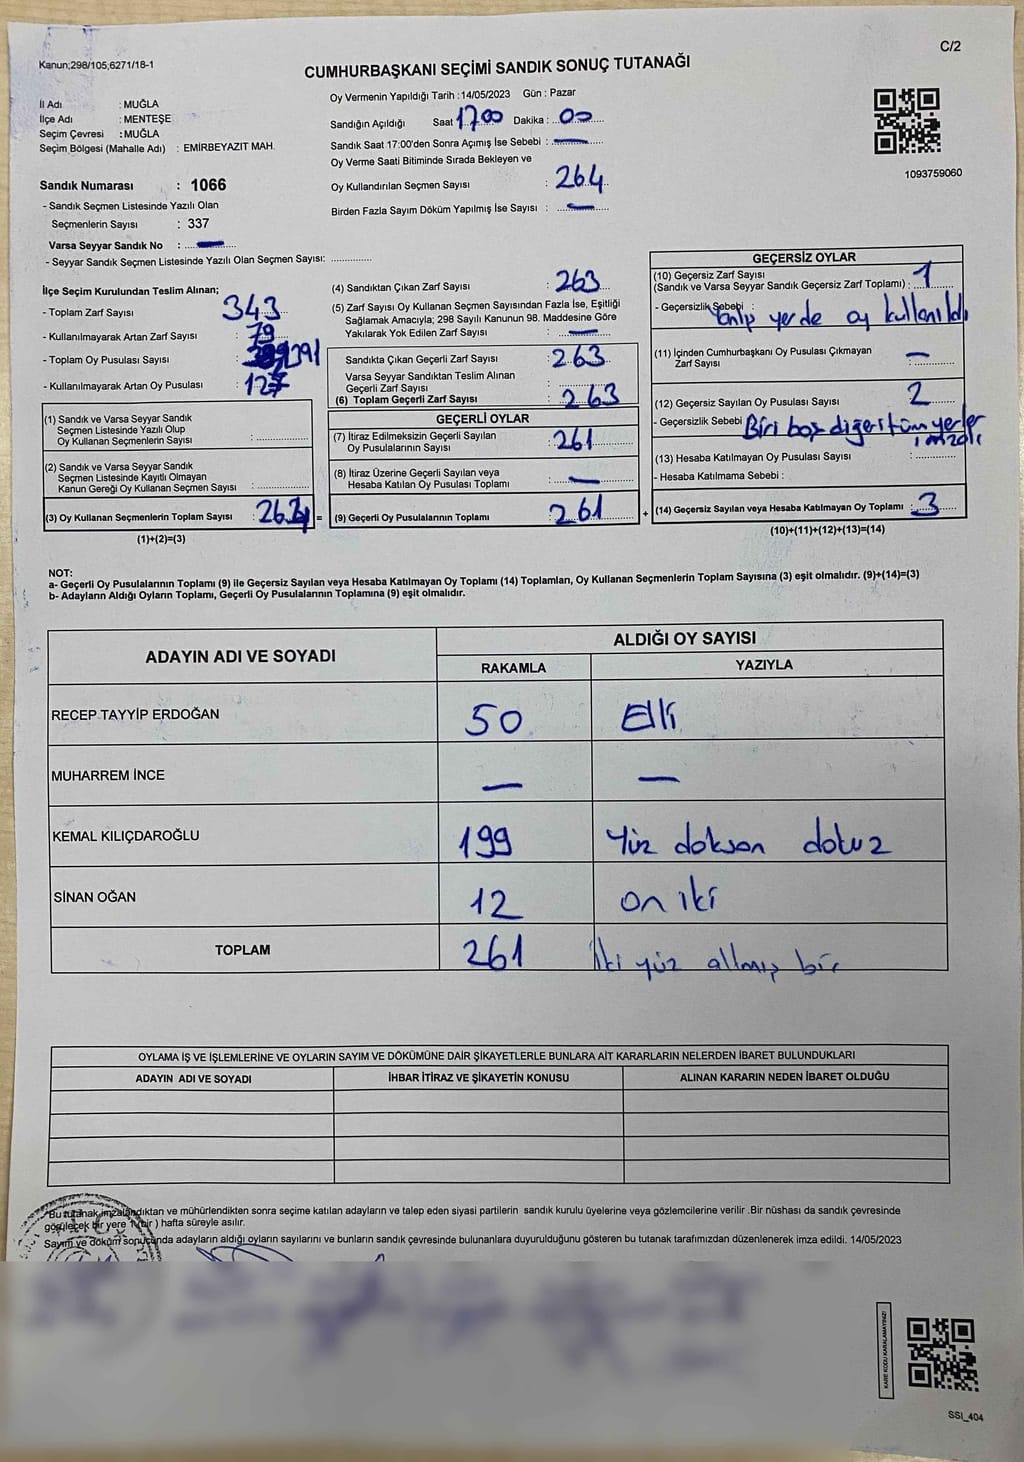 C/2
Kanun;298/105;6271/18-1
CUMHURBAŞKANI SEÇİMİ SANDIK SONUÇ TUTANAĞI
İl Adı : MUĞLA
İlçe Adı : MENTEŞE
Seçim Çevresi : MUĞLA
Seçim Bölgesi (Mahalle Adı) : EMİRBEYAZIT MAH.
Sandık Numarası : 1066
- Sandık Seçmen Listesinde Yazılı Olan
Seçmenlerin Sayısı : 337
Varsa Seyyar Sandık No : —
- Seyyar Sandık Seçmen Listesinde Yazılı Olan Seçmen Sayısı: ..............
Oy Vermenin Yapıldığı Tarih : 14/05/2023 Gün : Pazar
Sandığın Açıldığı Saat 17:00 Dakika : 00
Sandık Saat 17:00'den Sonra Açımış İse Sebebi : —
Oy Verme Saati Bitiminde Sırada Bekleyen ve
Oy Kullandırılan Seçmen Sayısı : 264
Birden Fazla Sayım Döküm Yapılmış İse Sayısı : —
1093759060
İlçe Seçim Kurulundan Teslim Alınan;
- Toplam Zarf Sayısı : 343
- Kullanılmayarak Artan Zarf Sayısı : 79
- Toplam Oy Pusulası Sayısı : 391
- Kullanılmayarak Artan Oy Pusulası : 127
(1) Sandık ve Varsa Seyyar Sandık
Seçmen Listesinde Yazılı Olup
Oy Kullanan Seçmenlerin Sayısı :
(2) Sandık ve Varsa Seyyar Sandık
Seçmen Listesinde Kayıtlı Olmayan
Kanun Gereği Oy Kullanan Seçmen Sayısı :
(3) Oy Kullanan Seçmenlerin Toplam Sayısı : 264 =
(1)+(2)=(3)
(4) Sandıktan Çıkan Zarf Sayısı : 263
(5) Zarf Sayısı Oy Kullanan Seçmen Sayısından Fazla İse, Eşitliği
Sağlamak Amacıyla; 298 Sayılı Kanunun 98. Maddesine Göre
Yakılarak Yok Edilen Zarf Sayısı : —
Sandıkta Çıkan Geçerli Zarf Sayısı : 263
Varsa Seyyar Sandıktan Teslim Alınan
Geçerli Zarf Sayısı :
(6) Toplam Geçerli Zarf Sayısı : 263
GEÇERLİ OYLAR
(7) İtiraz Edilmeksizin Geçerli Sayılan
Oy Pusulalarının Sayısı : 261
(8) İtiraz Üzerine Geçerli Sayılan veya
Hesaba Katılan Oy Pusulası Toplamı : —
(9) Geçerli Oy Pusulalarının Toplamı : 261 +
GEÇERSİZ OYLAR
(10) Geçersiz Zarf Sayısı
(Sandık ve Varsa Seyyar Sandık Geçersiz Zarf Toplamı) : 1
- Geçersizlik Sebebi : Yanlış yerde oy kullanıldı
(11) İçinden Cumhurbaşkanı Oy Pusulası Çıkmayan
Zarf Sayısı : —
(12) Geçersiz Sayılan Oy Pusulası Sayısı : 2
- Geçersizlik Sebebi Biri boş diğeri tüm yerler
imzalı
(13) Hesaba Katılmayan Oy Pusulası Sayısı :
- Hesaba Katılmama Sebebi :
(14) Geçersiz Sayılan veya Hesaba Katılmayan Oy Toplamı : 3
(10)+(11)+(12)+(13)=(14)
NOT:
a- Geçerli Oy Pusulalarının Toplamı (9) ile Geçersiz Sayılan veya Hesaba Katılmayan Oy Toplamı (14) Toplamları, Oy Kullanan Seçmenlerin Toplam Sayısına (3) eşit olmalıdır. (9)+(14)=(3)
b- Adayların Aldığı Oyların Toplamı, Geçerli Oy Pusulalarının Toplamına (9) eşit olmalıdır.
ADAYIN ADI VE SOYADI ALDIĞI OY SAYISI
RAKAMLA YAZIYLA
RECEP TAYYİP ERDOĞAN 50 Elli
MUHARREM İNCE — —
KEMAL KILIÇDAROĞLU 199 Yüz doksan dokuz
SİNAN OĞAN 12 on iki
TOPLAM 261 iki yüz altmış bir
OYLAMA İŞ VE İŞLEMLERİNE VE OYLARIN SAYIM VE DÖKÜMÜNE DAİR ŞİKAYETLERLE BUNLARA AİT KARARLARIN NELERDEN İBARET BULUNDUKLARI
ADAYIN ADI VE SOYADI İHBAR İTİRAZ VE ŞİKAYETİN KONUSU ALINAN KARARIN NEDEN İBARET OLDUĞU
Bu tutanak imzalandıktan ve mühürlendikten sonra seçime katılan adayların ve talep eden siyasi partilerin sandık kurulu üyelerine veya gözlemcilerine verilir .Bir nüshası da sandık çevresinde
görülecek bir yere 1 (bir ) hafta süreyle asılır.
Sayım ve döküm sonucunda adayların aldığı oyların sayılarını ve bunların sandık çevresinde bulunanlara duyurulduğunu gösteren bu tutanak tarafımızdan düzenlenerek imza edildi. 14/05/2023
KARE KODU KARALAMAYINIZ!
SSI_404